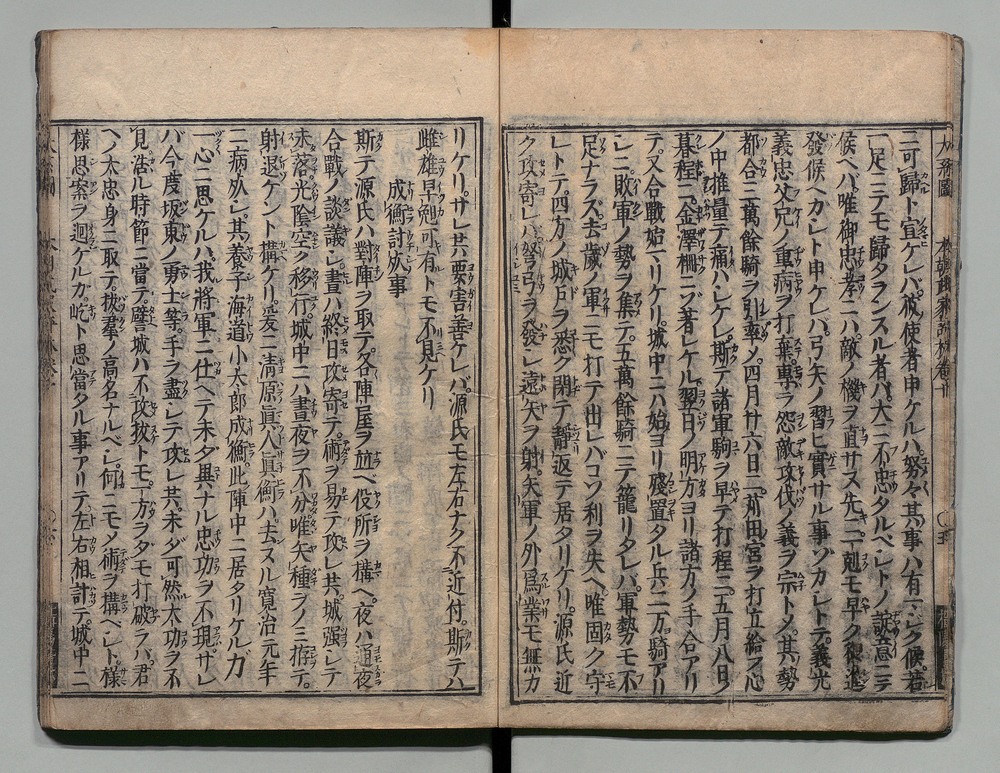 ニ可歸ト宣ケレバ彼使者申ケルハ努々其事ハ有マジク候若
一足ニテモ歸タランスル者ハ大ニ不忠タルベシトノ誂意ニ
候ヘバ唯御忠孝ニハ敵ノ機ヲ直サス先ニ一剋モ早ク
發候ヘカシト申ケレバ弓矢ノ習ヒ實サル事ゾカシトテ義光
義忠父兄ノ重病ヲ打棄專ラ怨敵攻伐ノ義ヲ宗トメ其勢
都合三萬餘騎ヲ引率メ四月廿六日ニ苅田宮ヲ打立給フ心
ノ中推量テ痛ハシケレ斯テ諸軍駒ヲ早テ打程ニ五月八日ノ
暮程ニ金澤柵ニゾ著シケル翌日ノ明方ヨリ諸方ノ手合アリ
テ又合戰始リケリ城中ニハ始ヨリ殘置タル兵二万騎アリ
シニ敗軍ノ勢ヲ集テ五萬餘騎ニテ籠リタレバ軍勢モ不
足ナラズ去歳ノ軍ニモ打テ出レバコソ利ヲ失ヘ唯固ク守
レトテ四方ノ城戸ヲ悉ク閉テ靜返テ居タリケリ源氏近
ク攻寄レバ弩弓ヲ發シ遠矢ヲ射矢軍ノ外爲業モ無カ
リケリサレ共要害善ケレバ源氏モ左右ナク不近付斯テハ
雌雄早剋可有トモ不見ケリ
成衡討死事
斯テ源氏ハ對陣ヲ取テ名陣屋ヲ並ベ役所ヲ構ヘ夜ハ通夜
合戰ノ談議シ晝ハ終日攻寄テ術ヲ易テ攻レ共城强シテ
未落光陰空ク移行城中ニハ晝夜ヲ不分唯矢種ヲノミ拵テ
射退ケント構ケリ爰ニ清原眞人眞衡ハ去スル寛治元年
ニ病死シ其養子海道小太郎成衡此陣中ニ居タリケルガ
一心ニ思ケルハ我將軍ニ仕ヘテ未タ異ナル忠功ヲ不現サレ
バ今度坂東ノ勇士等手ヲ盡シテ攻レ共未ダ可然太功ヲ不
見浩ル時節ニ當テ譬城ハ不攻拔トモ一方ヲタモ打破ラバ君
ヘノ太忠身ニ取テ拔羣ノ高名ナルベシ何ニモメ術ヲ構ベシト樣
樣思案ヲ廻ケルカ屹ト思當タル事アリテ左右相計テ城中ニ